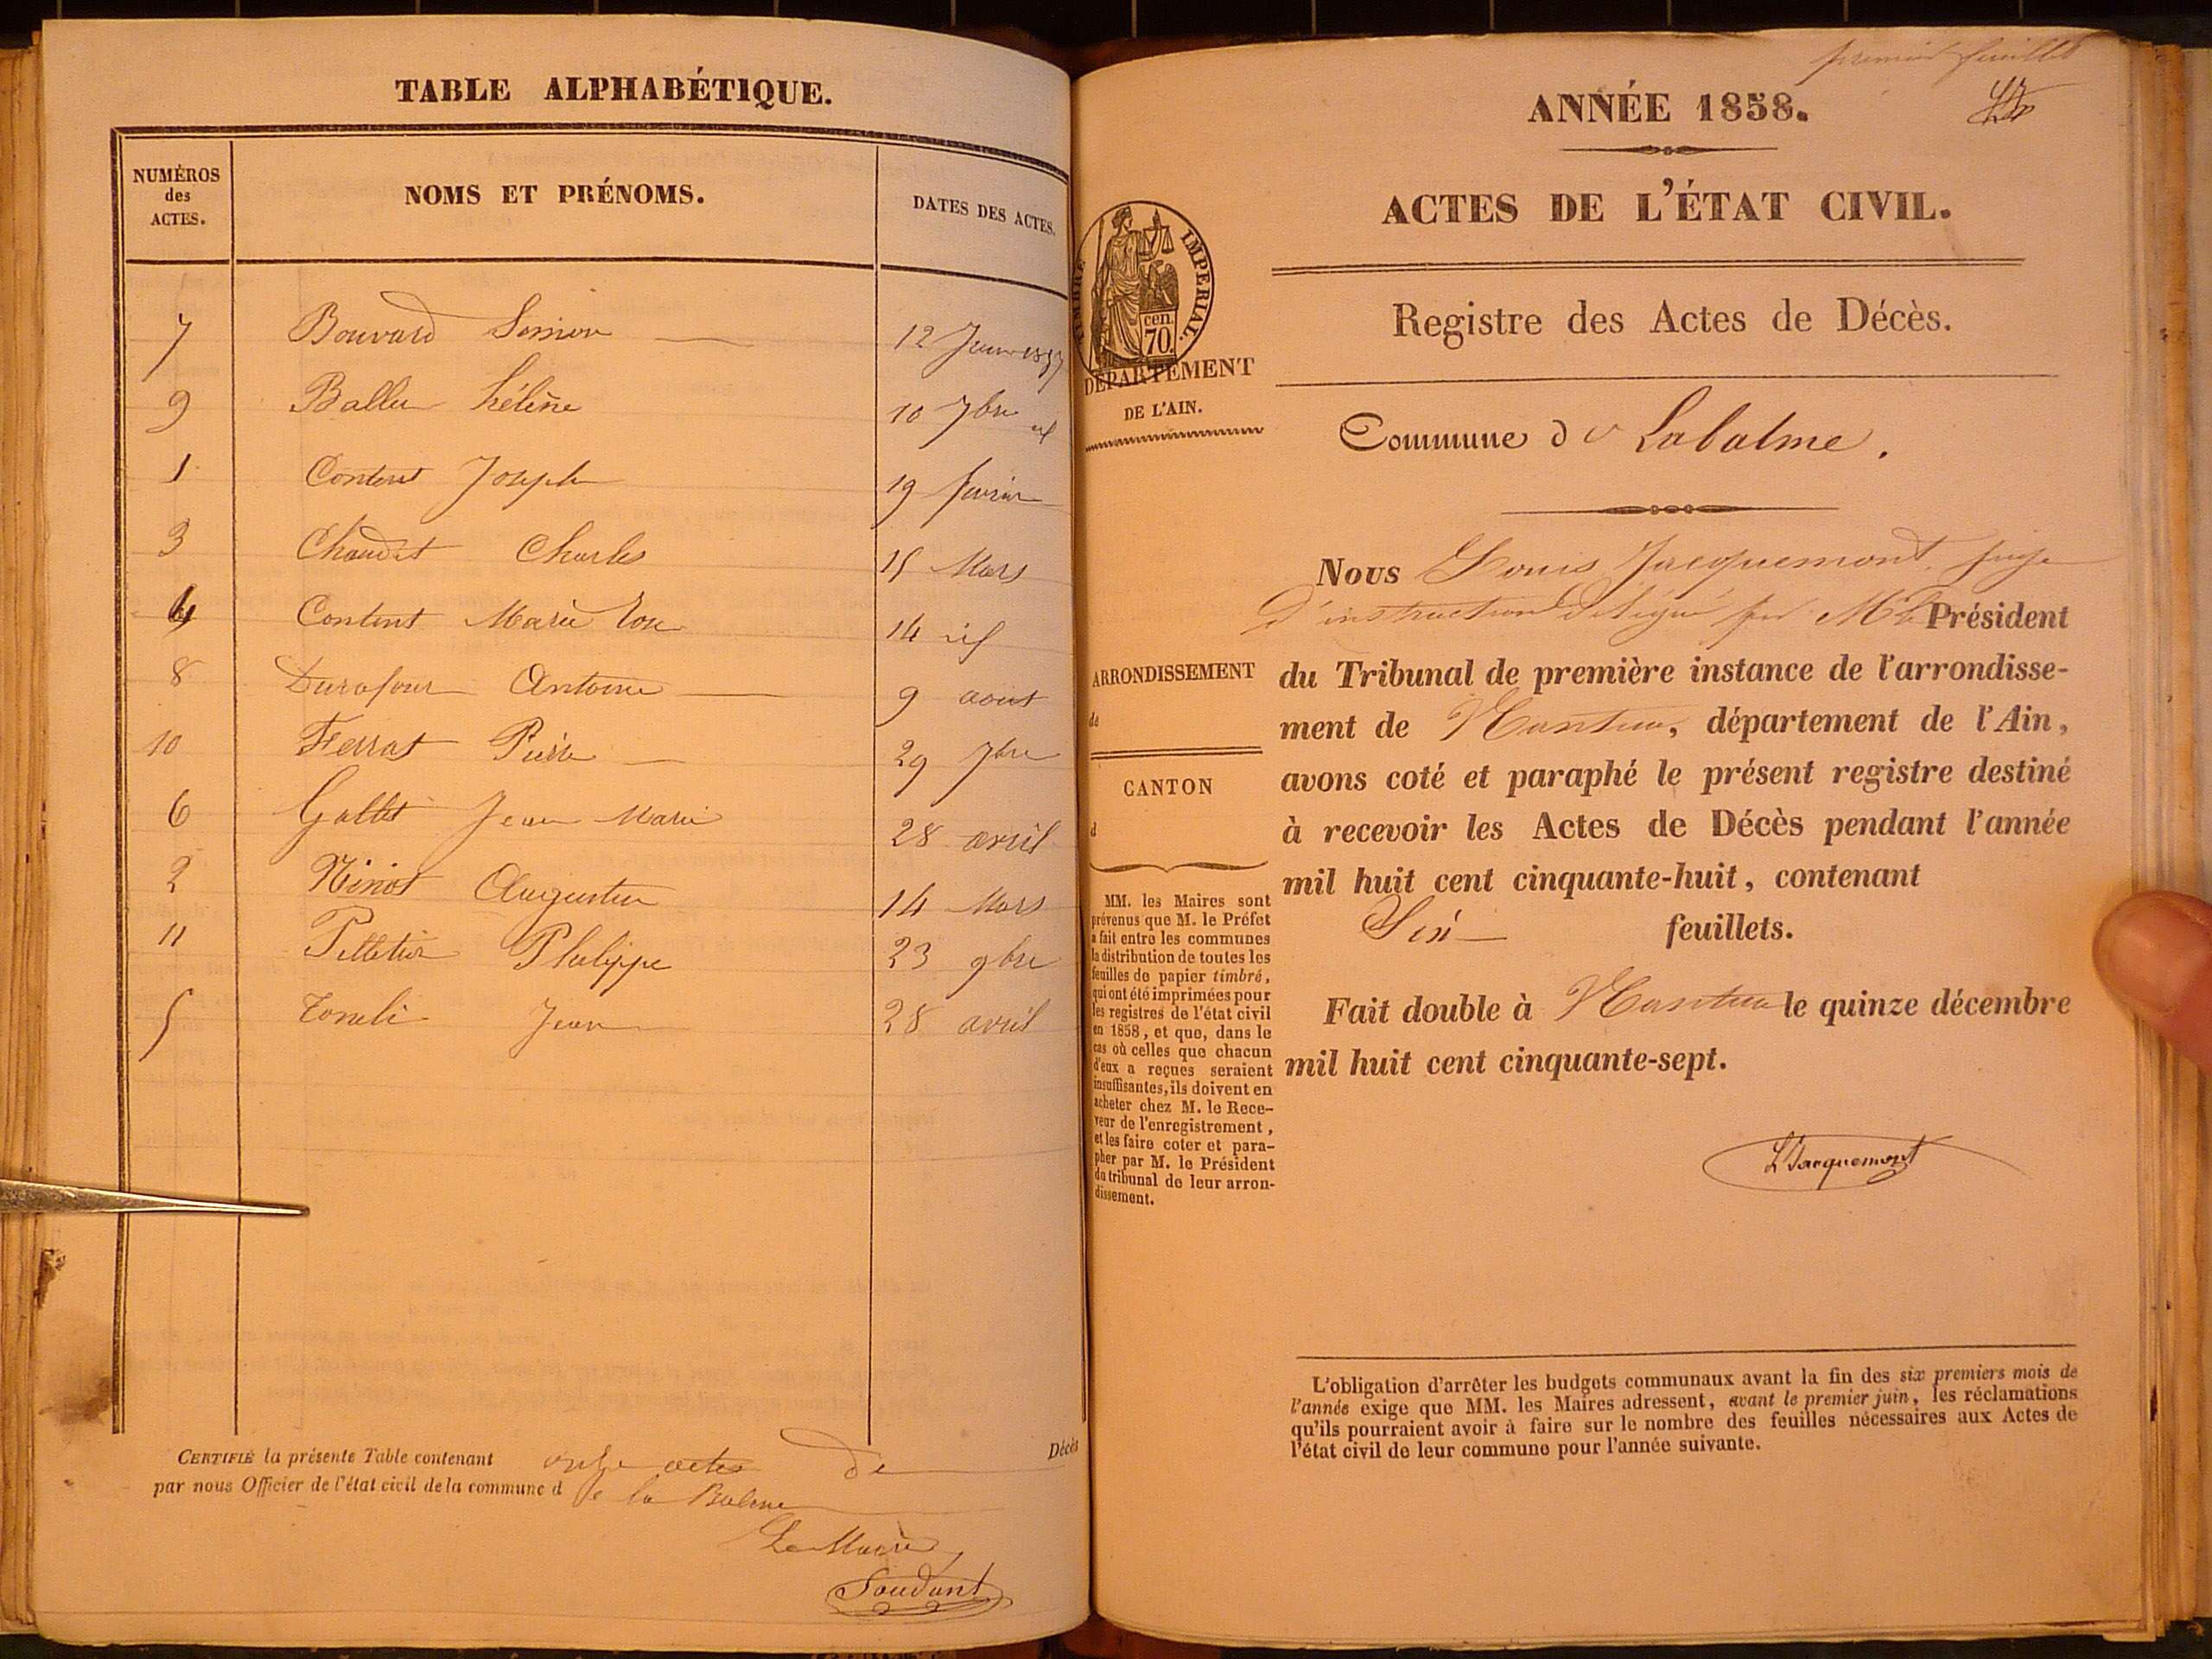 TABLE ALPHABÉTIQUE.
NUMÉROS
des
ACTES.
NOMS ET PRÉNOMS.
DATES DES ACTES.
7 Bouvard Simon 12 Juin 1857
9 Ballu hélène 10 7bre id
1 Content Joseph 19 février
3 Chaudet Charles 15 Mars
4 Content Marie Rose 14 id
8 Durafour Antoine 9 aout
10 Ferrat Pierre 29 7bre
6 Gallet Jean Marie 28 avril
2 Ninot Augustin 14 Mars
11 Pelletier Philippe 23 9bre
5 Jean 28 avril
CERTIFIÉ la présente Table contenant onze actes de Décès
par nous Officier de l'état civil de la commune d e la Balme
Le Maire
Soudant
premier feuillet
ANNÉE 1858.
ACTES DE L'ÉTAT CIVIL.
Registre des Actes de Décès.
TIMBRE IMPERIAL.
cen.
70.
DÉPARTEMENT
DE L'AIN.
Commune de Labalme.
Nous Louis Jacquemont, Juge
d'instruction délégué par Mr le Président
du Tribunal de première instance de l'arrondisse-
ment de Nantua, département de l'Ain,
avons coté et paraphé le présent registre destiné
à recevoir les Actes de Décès pendant l'année
mil huit cent cinquante-huit, contenant
Six feuillets.
Fait double à Nantua le quinze décembre
mil huit cent cinquante-sept.
LJacquemont
ARRONDISSEMENT
de
CANTON
d
MM. les Maires sont
prévenus que M. le Préfet
a fait entre les communes
la distribution de toutes les
feuilles de papier timbré,
qui ont été imprimées pour
les registres de l'état civil
en 1858, et que, dans le
cas où celles que chacun
d'eux a reçues seraient
insuffisantes, ils doivent en
acheter chez M. le Rece-
veur de l'enregistrement,
et les faire coter et para-
pher par M. le Président
du tribunal de leur arron-
dissement.
L'obligation d'arrêter les budgets communaux avant la fin des six premiers mois de
l'année exige que MM. les Maires adressent, avant le premier juin, les réclamations
qu'ils pourraient avoir à faire sur le nombre des feuilles nécessaires aux Actes de
l'état civil de leur commune pour l'année suivante.